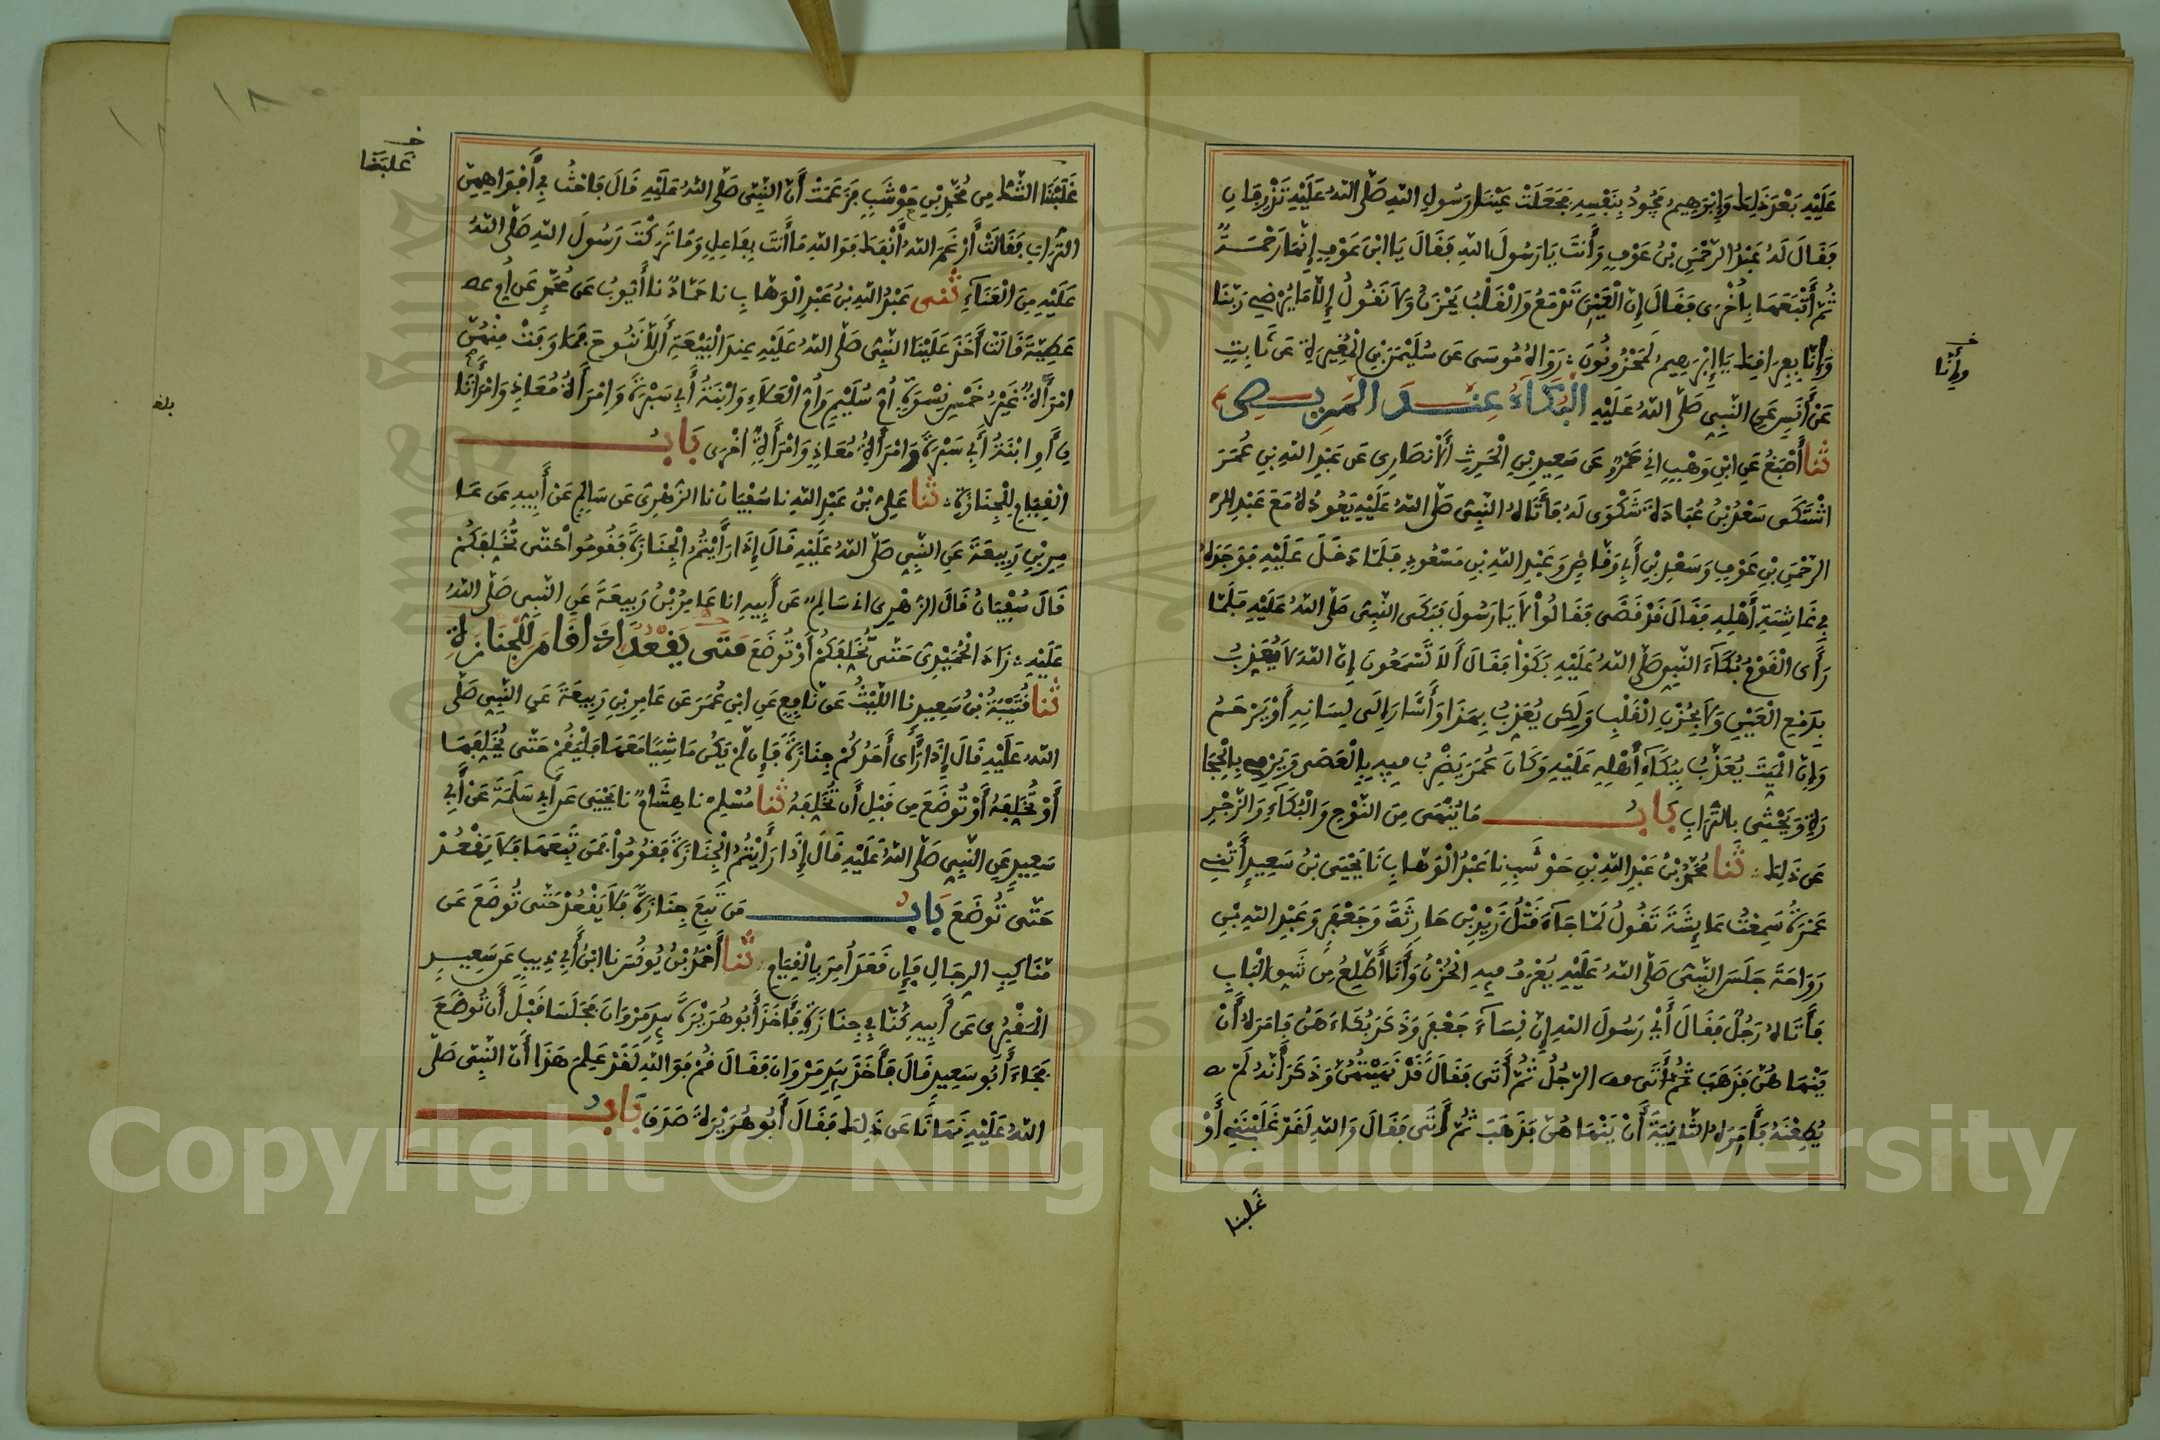 عَلَيْهِ بَعْدَ ذَلِكَ وَإِبْرَهِيمُ يَجُودُ بِنَفْسِهِ فَجَعَلَتْ عَيْنَا رَسُولِ اللهِ صَلَّى اللهُ عَلَيْهِ تَذْرِفَانِ
فَقَالَ لَهُ عَبْدُ الرَّحْمَنِ بْنُ عَوْفٍ وَأَنتَ يَا رَسُولَ اللهِ فَقَالَ يَا ابْنَ عَوْفٍ إِنَّهَا رَحْمَةٌ
ثُمَّ أَتْبَعَهَا بِأُخْرَى فَقَالَ إِنَّ الْعَيْنَ تَدْمَعُ وَالْقَلْبُ يَحْزَنُ وَلَا نَقُولُ إِلَّا مَا يُرْضِي رَبَّنَا
وَإِنَّا بِفِرَاقِكَ يَا إِبْرَهِيمُ لَمَحْزُونُونَ رَوَاهُ مُوسَى عَن سُلَيْمَنَ بْنِ الْمُغِيرَةِ عَن ثَابِتٍ
وَإِنَّا
عَنْ أَنَسٍ عَنِ النَّبِيِّ صَلَّى اللهُ عَلَيْهِ الْبُكَاءُ عِنْدَ الْمَرِيضِ
ثنا أَصْبَغُ عَنِ ابْنِ وَهْبٍ اني عَمْرٌو عَن سَعِيدِ بْنِ الْحَرِثِ الْأَنصَارِي عَن عَبْدِ اللهِ بْنِ عُمَرَ
اشْتَكَى سَعْدُ بْنُ عُبَادَةَ شَكْوَى لَهُ فَأَتَاهُ النَّبِيُّ صَلَّى اللهُ عَلَيْهِ يَعُودُهُ مَعَ عَبْدِ
الرَّحْمَنِ بْنِ عَوْفٍ وَسَعْدِ بْنِ أَبِي وَقَّاصٍ وَعَبْدِ اللهِ بْنِ مَسْعُودٍ فَلَمَّا دَخَلَ عَلَيْهِ فَوَجَدَهُ
فِي غَاشِيَةِ أَهْلِهِ فَقَالَ قَدْ قَضَى فَقَالُوا لَا يَا رَسُولَ فَبَكَى النَّبِيُّ صَلَّى اللهُ عَلَيْهِ فَلَمَّا
رَأَى الْقَوْمُ بُكَاءَ النَّبِيِّ صَلَّى اللهُ عَلَيْهِ بَكَوْا فَقَالَ أَلَا تَسْمَعُونَ إِنَّ اللهَ لَا يُعَذِّبُ
بِدَمْعِ الْعَيْنِ وَلَا بِحُزْنِ الْقَلْبِ وَلَكِن يُعَذِّبُ بِهَذَا وَأَشَارَ إِلَى لِسَانِهِ أَوْ يَرْحَمُ
وَإِنَّ الْمَيِّتَ يُعَذَّبُ بِبُكَاءِ أَهْلِهِ عَلَيْهِ وَكَانَ عُمَرَ يَضْرِبُ فِيهِ بِالْعَصَى وَيَرْمِي بِالْحِجَا
رَةِ وَيَحْثِي بِالتُّرَابِ بَابُ مَا يُنْهَى مِنَ النَّوْحِ وَالْبُكَاءِ وَالزَّجْرِ
عَن ذَلِكَ ثَنَا مُحَمَّدُ بْنُ عَبْدِ اللهِ بْنِ حَوْشَبٍ نا عَبْدُ الْوَهَّابِ نَا يَحْيَى بْنُ سَعِيدٍ
عَمْرَةُ سَمِعْتُ عَايِشَةَ تَقُولُ لَمَّا جَاءَ قَتْلُ زَيْدِ بْنِ حَارِثَةَ وَجَعْفَرٍ وَعَبْدِ اللهِ بْنِ
رَوَاحَةَ جَلَسَ النَّبِيُّ صَلَّى اللهُ عَلَيْهِ يُعْرَفُ فِيهِ الْحُزْنُ وَأَنَا أَطَّلِعُ مِن شَقِّ الْبَابِ
فَأَتَاهُ رَجُلٌ فَقَالَ أَيْ رَسُولَ اللهِ إِنَّ نِسَاءَ جَعْفَرٍ وَذَكَرَ بُكَاءَهُنَّ فَأَمَرَهُ أَنْ
يَنْهَاهُنَّ فَذَهَبَ الرَّجُلُ ثُمَّ أَتَى فَقَالَ قَدْ نَهَيْتُهُنَّ وَذَكَرَ أَنَّهُ لَمْ
يُطِعْنَهُ فَأَمَرَهُ الثَّانِيَةَ أَنْ يَنْهَاهُنَّ فَذَهَبَ ثُمَّ أَتَى فَقَالَ وَاللهِ لَقَدْ غَلَبْنَنِي أَوْ
غَلَبْنَا
١٨
غَلَبْنَنَا
غَلَبْنَنَا الشَّكُّ مِن مُحَمَّدِ بْنِ حَوْشَبٍ فَزَعَمَتْ أَنَّ النَّبِيَّ صَلَّى اللهُ عَلَيْهِ قَالَ فَاحْثُ فِي أَفْوَاهِهِنَّ
التُّرَابَ فَقَالَتْ أَرْغَمَ اللهُ أَنْفَكَ فَوَاللهِ مَا أَنتَ بِفَاعِلٍ وَمَا تَرَكْتَ رَسُولَ اللهِ صَلَّى اللهُ
عَلَيْهِ مِنَ الْعَنَاءِ ثنى عَبْدُ اللهِ بْنُ عَبْدِ الْوَهَّابِ نا حَمَّادٌ نا أَيُّوبُ عَن مُحَمَّدٍ عَن أُمِّ عـه
عَطِيَّةَ قَالَتْ أَخَذَ عَلَيْنَا النَّبِيُّ صَلَّى اللهُ عَلَيْهِ عِندَ الْبَيْعَةِ أَلَّا نَنُوحَ فَمَا وَفَتْ مِنْهُنَّ
امْرَأَةٌ غَيْرُ خَمْسِ نِسْوَةٍ أُمُّ سُلَيْمٍ وَأُمُّ الْعَلَاءِ وَابْنَةُ أَبِي سَبْرَةَ وَامْرَأَةُ مُعَاذٍ وَامْرَأَتَا
نِ أَوِ ابْنَةُ أَبِي سَبْرَةَ وَامْرَأَةُ مُعَاذٍ وَامْرَأَةٌ أُخْرَى بَابُ
الْقِيَامِ لِلْجِنَازَةِ ثنا عَلِيُّ بْنُ عَبْدِ اللهِ نا سُفْيَانُ نا الزُّهْرِيُّ عَن سَالِمٍ عَنْ أَبِيهِ عَن عَا
مِرِ بْنِ رَبِيعَةَ عَنِ النَّبِيِّ صَلَّى اللهُ عَلَيْهِ قَالَ إِذَا رَأَيْتُمُ الْجِنَازَةَ فَقُومُوا حَتَّى تُخَلِّفَكُمْ
قَالَ سُفْيَانُ قَالَ الزُّهْرِي اني سَالِمٌ عَن أَبِيهِ انا عَامِرُ بْنُ رَبِيعَةَ عَنِ النَّبِي صَلَّى اللهُ
عَلَيْهِ زَادَ الْحُمَيْدِيُّ حَتَّى تُخَلِّفَكُمْ أَوْ تُوضَعَ مَتَى يَقْعُدُ إِذَا قَامَ لِلْجِنَازَةِ
ثَنَا قُتَيْبَةُ بْنُ سَعِيدٍ نا اللَّيْثُ عَن نَافِعٍ عَنِ ابْنِ عُمَرَ عَن عَامِرِ بْنِ رَبِيعَةَ عَنِ النَّبِيِّ صَلَّى
اللهُ عَلَيْهِ قَالَ إِذَا رَأَى أَحَدُكُمْ جِنَازَةً فَإِن لَمْ يَكُن مَاشِيًا مَعَهَا فَلْيَقُمْ حَتَّى يُخَلِّفَهَا
أَوْ تُخَلِّفَهُ أَوْ تُوضَعَ مِن قَبْلِ أَن تُخَلِّفَهُ ثنا مُسْلِمٌ نا هِشَامٌ نا يَحْيَى عَن أَبِي سَلَمَةَ عَنْ أَبِي
سَعِيدٍ عَنِ النَّبِيِّ صَلَّى اللهُ عَلَيْهِ قَالَ إِذَا رَأَيْتُمُ الْجِنَازَةَ فَقُومُوا فَمَن تَبِعَهَا فَلَا يَقْعُدْ
حَتَّى تُوضَعَ بَابُ مَن تَبِعَ جِنَازَةً فَلَا يَقْعُدْ حَتَّى تُوضَعَ عَن
مَنَاكِبِ الرِّجَالِ فَإِن قَعَدَ أُمِرَ بِالْقِيَامِ ثَنَا أَحْمَدُ بْنُ يُونُسَ نا ابْنُ أَبِي ذِيبٍ عَن سَعِيدٍ
الْمَقْبُرِي عَن أَبِيهِ كُنَّا فِي جِنَازَةٍ فَأَخَذَ أَبُو هُرَيْرَةَ بِيَدِ مَرْوَانَ فَجَلَسَا قَبْلَ أَن تُوضَعَ
فَجَاءَ أَبُو سَعِيدٍ قَالَ فَأَخَذَ بِيَدِ مَرْوَانَ فَقَالَ قُمْ فَوَاللهِ لَقَدْ عَلِمَ هَذَا أَنَّ النَّبِيَّ صَلَّى
اللهُ عَلَيْهِ نَهَانَا عَن ذَلِكَ فَقَالَ أَبُو هُرَيْرَةَ صَدَقَ بَابُ
Copyright © King Saud University